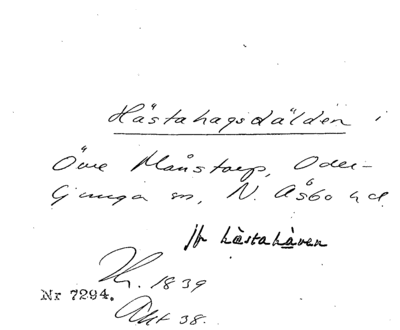 Hästahagsdälden i
Övre Månstorp, Oder-
ljunga sn, N. Åsbo hd.
jfr hästahaven
Hr. 1839
Nr 7294.
Akt 38.